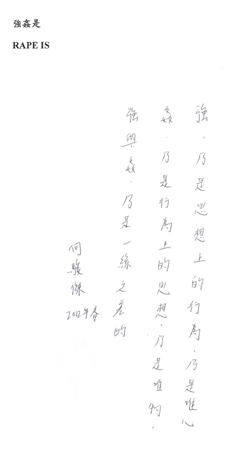 強姦是
RAPE IS
強，乃是思想上的行為，乃是唯心
姦，乃是行為上的思想，乃是唯物，
強與姦，乃是一線之差的
何駿傑